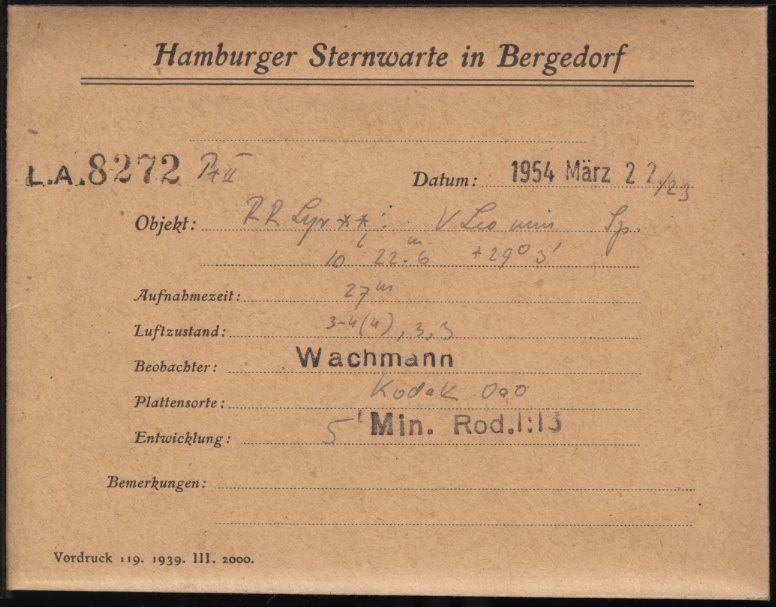 Hamburger Sternwarte in Bergedorf
L.A. 8272 Pr II
Datum: 1954 März 22/23
Objekt: RR Lyr **: V Leo min Sp.
10h 22m.6 +29° 5'
Aufnahmezeit: 27m
Luftzustand: 3-4(4), 3, 3
Beobachter: Wachmann
Plattensorte: Kodak OaO
Entwicklung: 5 Min. Rod. 1:13
Bemerkungen:
Vordruck 119. 1939. III. 2000.